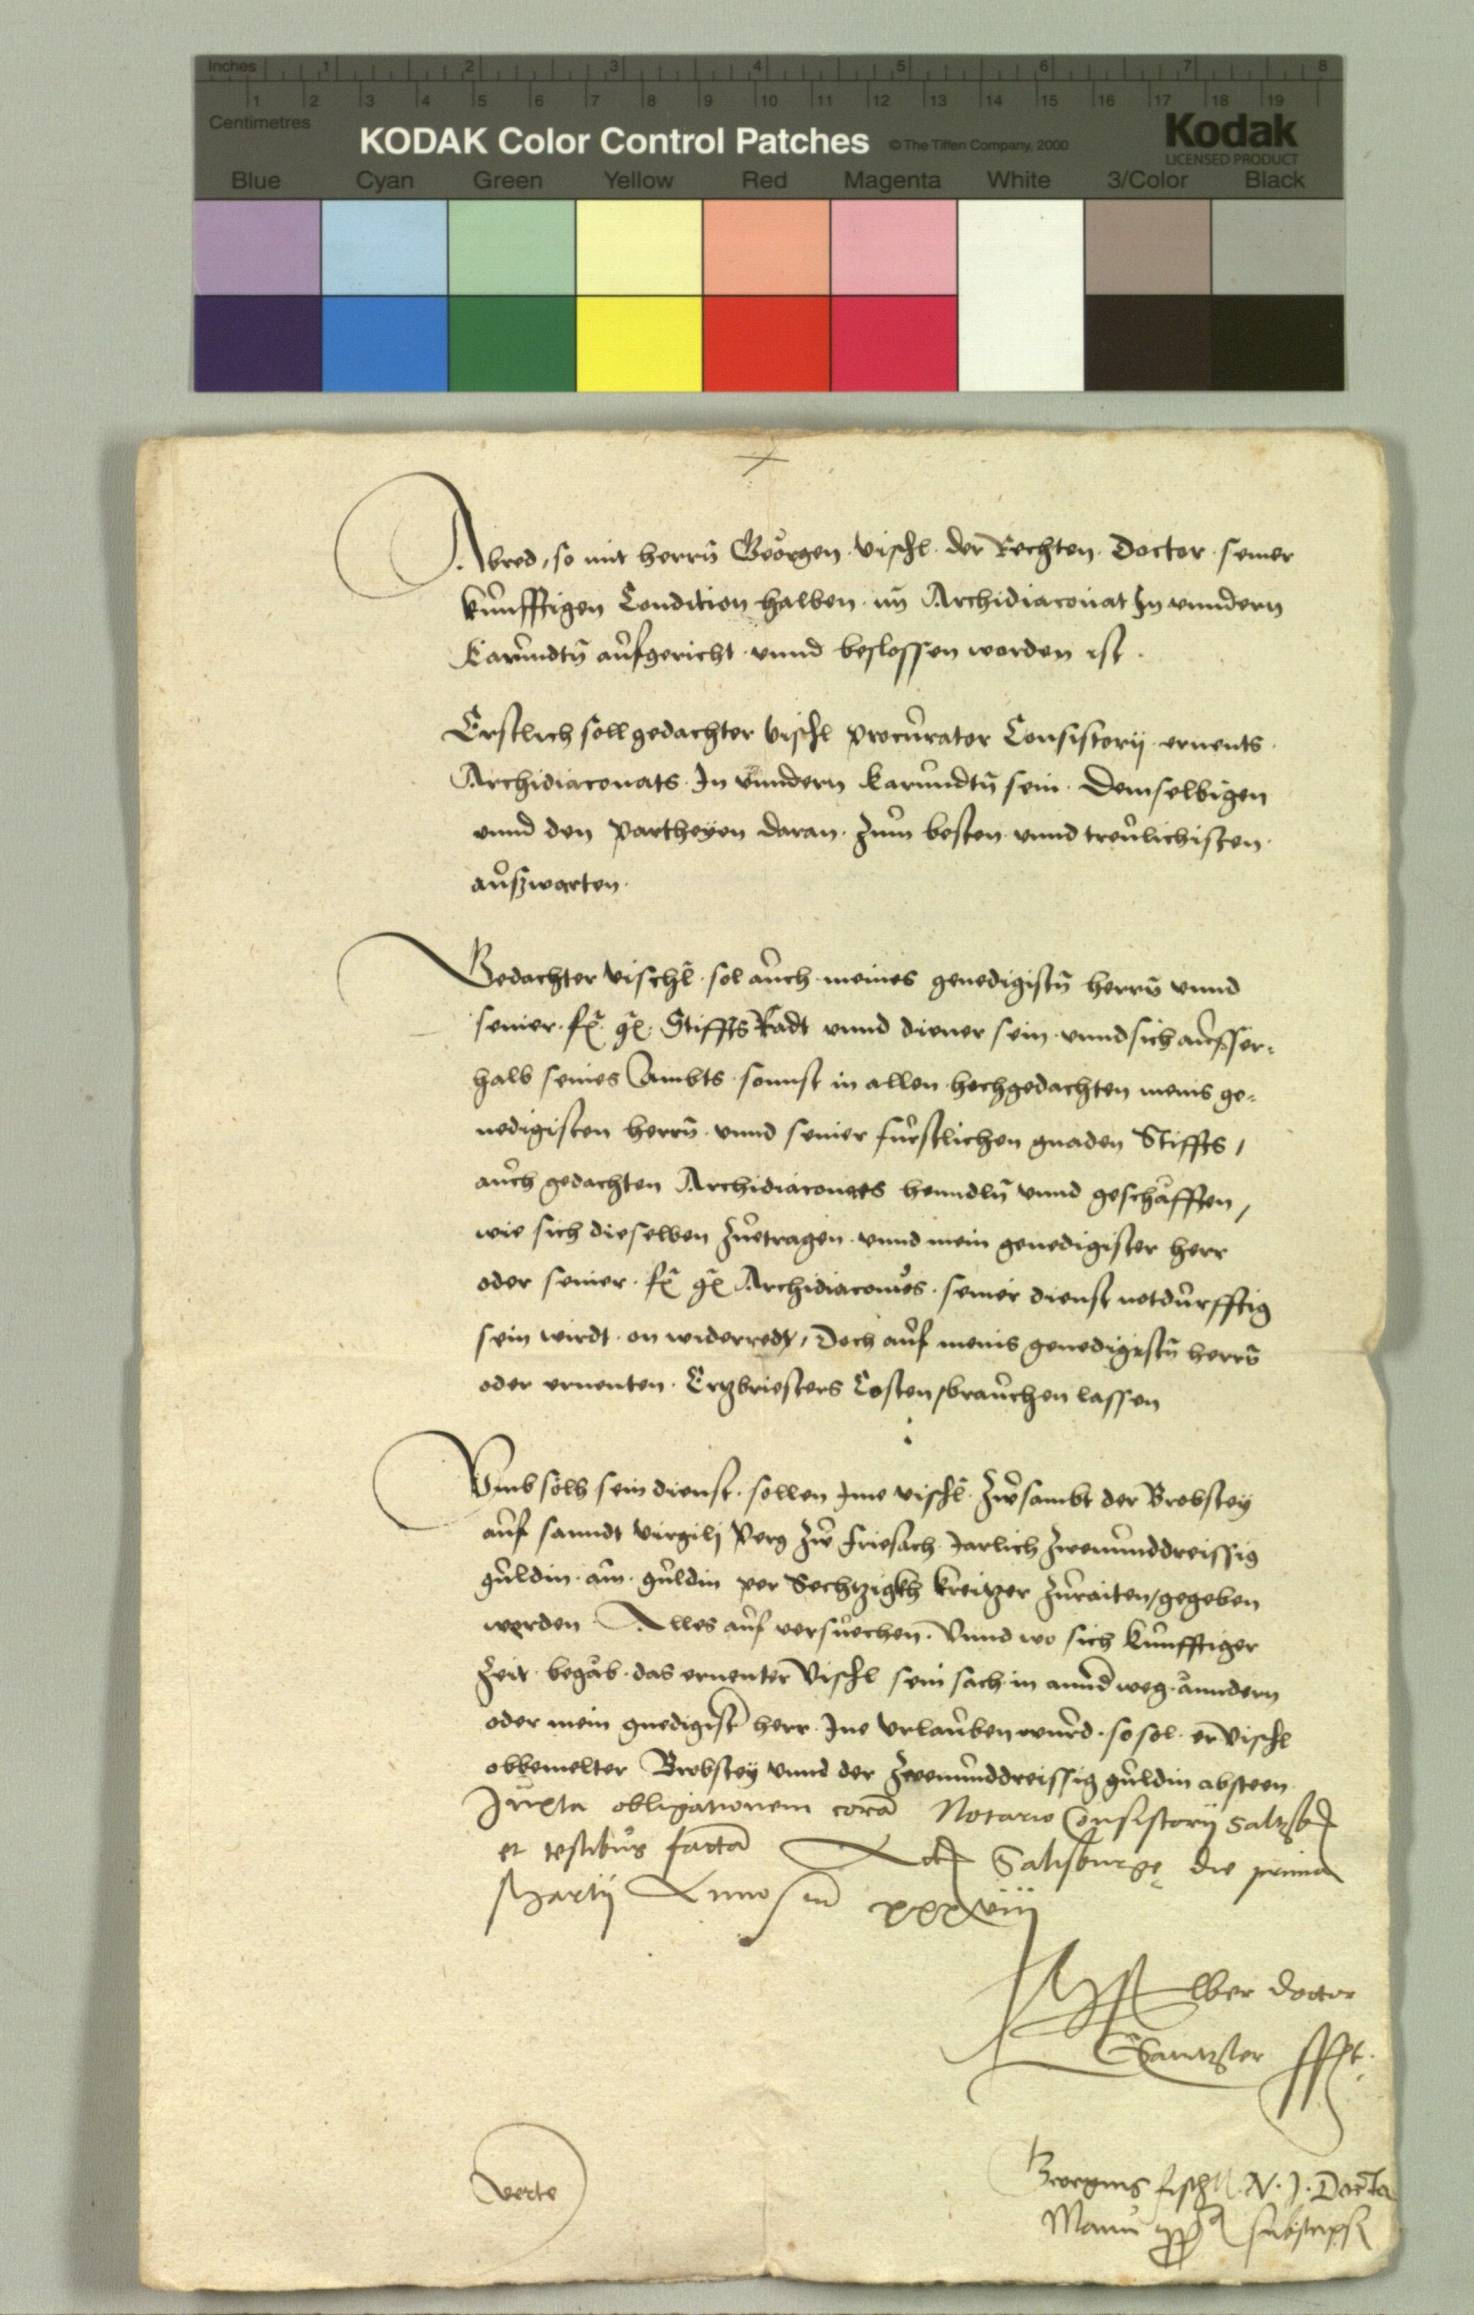 Inches 1 2 3 4 5 6 7 8
1 2 3 4 5 6 7 8 9 10 11 12 13 14 15 16 17 18 19
Centimetres
KODAK Color Control Patches © The Tiffen Company, 2000 Kodak
LICENSED PRODUCT
Blue Cyan Green Yellow Red Magenta White 3/Color Black
Abred, so mit herrn̄ Georgen vischl der Rechten Doctor seiner
kunfftigen Condition halben im̄ Archidiaconat In vnndern
Karndtn̄ aufgericht vnnd beslossen worden ist.
Erstlich soll gedachter vischl procurator Consistorij ernents
Archidiaconats In vnndern Karndtn̄ sein. Demselbigen
vnnd den partheyen daran zum besten vnnd treulichisten
auszwarten.
Gedachter vischl sol auch meines genedigistn̄ herrn̄ vnnd
seiner fr̄ gn̄ Stiffts Radt vnnd diener sein vnnd sich ausser-
halb seines Ambts sonnst in allen hochgedachten meins ge-
nedigisten herrn̄ vnnd seiner furstlichen gnaden Stiffts /
auch gedachten Archidiacones henndln̄ vnnd geschäfften /
wie sich dieselben zuetragen vnnd mein genedigister herr
oder seiner fr̄ gn̄ Archidiaconus seiner dienst notdurfftig
sein wirdt on widerredt, Doch auf meins genedigistn̄ herrn̄
oder ernenten Ertzbriesters Costen, brauchen lassen
Vmb solh sein dienst sollen Ime vischl zwsambt der Brobstey
auf sanndt virgilj perg zw friesach Jarlich zwenunddreissig
guldin am guldin per Sechtzigkh kreitzer zuraiten, gegeben
werden Alles auf versuechen. Vnnd wo sich kunfftiger
zeit begäb das ernenter Vischl sein sach in annd weg änndern
oder mein gnedigist herr Ine vrlauben wurd so sol er vischl
obbemelter Brobstey vnnd der zwenunddreissig guldin absteen
Juxta obligationem corā Notario Consistorij Saltzb
et testibus factā Act Salisburge die prima
Martij Anno xxxviii
Alber doctor
Canntzler
verte
Georgius fischl V. J. Docto
Manu ppa subscripsi